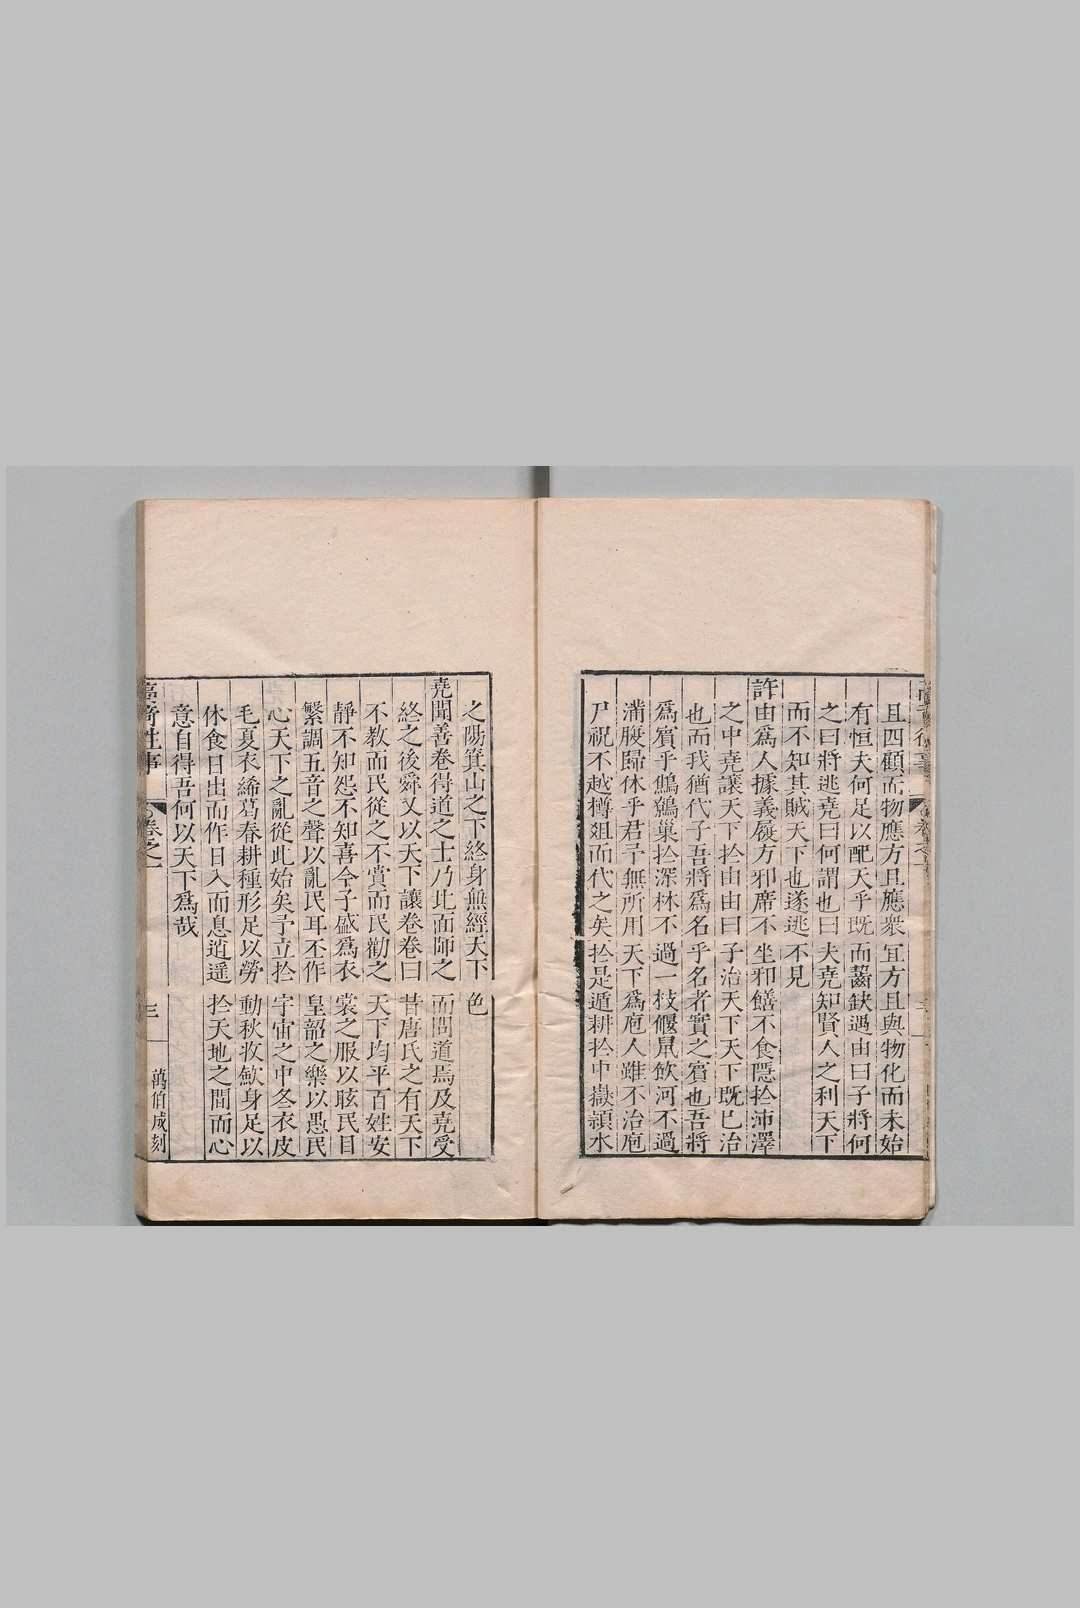 且四顧而物應方且應衆宜方且與物化而未始
有恒夫何足以配天乎既而齧缺遇由曰子將何
之曰將逃堯曰何謂也曰夫堯知賢人之利天下
而不知其賊天下也遂逃不見
許由爲人據義履方邪席不坐邪饍不食隱扵沛澤
之中堯讓天下扵由由曰子治天下天下既已治
也而我猶代子吾將爲名乎名者實之賓也吾將
爲賓乎鷦鷯巢扵深林不過一枝偃鼠飲河不過
滿腹歸休乎君予無所用天下爲庖人雖不治庖
尸祝不越樽俎而代之矣扵是遁耕扵中嶽潁水
之陽箕山之下終身無經天下色
堯聞善卷得道之士乃北面師之而問道焉及堯受
終之後舜又以天下讓卷卷曰昔唐氏之有天下
不教而民從之不賞而民勸之天下均平百姓安
靜不知怨不知喜今子盛爲衣裳之服以眩民目
繁調五音之聲以亂民耳丕作皇韶之樂以愚民
心天下之亂從此始矣予立扵宇宙之中冬衣皮
毛夏衣絺葛春耕種形足以勞動秋收斂身足以
休食日出而作日入而息逍遥扵天地之間而心
意自得吾何以天下爲哉
卷之一
三
萬伯成刻